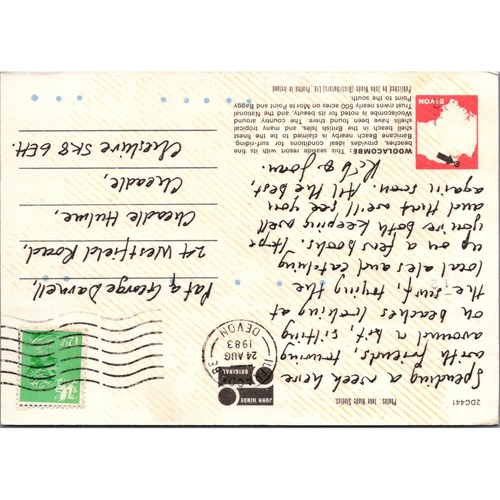 2DC441
Photos : John Hinde Studios.
JOHN HINDE
ORIGINAL
24 AUG
1983
DEVON
Spending a week here
with friends, touring
around a bit, sitting
on beaches looking at
the surf, trying the
local ales and catching
up on a few books. Hope
you're both keeping well
and that we'll see you
again soon. All the best,
Reb & Joan.
Pat & George Darnell,
24 Westfield Road,
Cheadle Hulme,
Cheadle,
Cheshire SK8 6EH.
WOOLACOMBE: This seaside resort with its fine
beaches, provides ideal conditions for surf-riding.
Barricane Beach nearby is claimed to be the finest
shell beach in the British Isles, and many tropical
shells have been found there. The country around
Woolacombe is noted for its beauty, and the National
Trust owns nearly 500 acres on Morte Point and Baggy
Point to the south.
Published by John Hinde (Distributors) Ltd. Printed in Ireland
DEVON